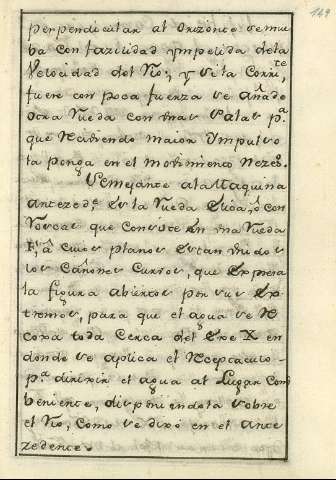 149
perpendicular al Orizonte se mue
ba con fazilidad ympelida de la
Velocidad del Rio; y si la Corri.te
fuere con poca fuerza se añade
otra Rueda con mas Palas p.a
que Reciviendo maior Ympulso
la ponga en el movimiento Nezes.o
Semejante a la Maquina
Anteced.e es la Rueda con
Roscas que Consiste en una Rueda
â cuios planos estan unidos
los Cañones Curbos, que Expresa
la figura abiertos por sus Ex-
tremos, para que el agua se Re
coxa toda Cerca del Exe X en
donde se aplica el Receptaculo
p.a dirixir el agua al Lugar Com
beniente, disponiendola sobre
el Rio, Como se dixo en el Ante
zedence.